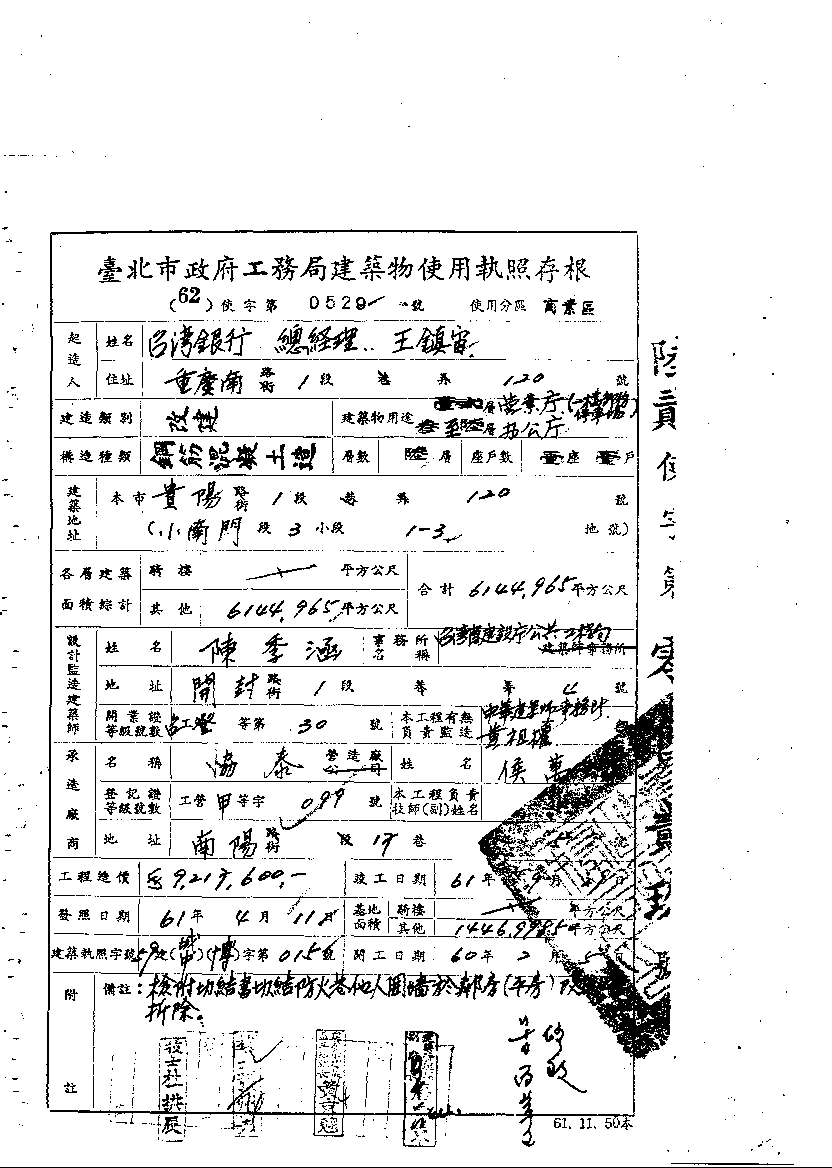 臺北市政府工務局建築物使用執照存根
(62)使字第 0529 號 使用分區 商業區
起造人 姓名 台湾銀行 總経理 王鎮宙
住址 重慶南 路街 1 段 巷 弄 120 號
建造類別 改建 建築物用途 層營業廳
叁至陸層办公厅
構造種類 鋼筋混凝土造 層數 陸層 座戶數 壹座 壹戶
建築地址 本市 貴陽 路街 1 段 巷 弄 120 號
(小南門 段 3 小段 1-3 地號)
各層建築面積綜計 騎樓 平方公尺 合計 6144.965 平方公尺
其他 6144.965 平方公尺
設計監造建築師 姓名 陳季涵 事務所名稱 台湾省建設庁公共工程局 建築師事務所
地址 開封 路街 1 段 巷 弄 4 號
開業證等級號數 台工登 等第 30 號 本工程有無負責監造 中華建築師事務所 黃祖權
承造廠商 名稱 協泰 營造廠公司 姓名 侯萬
登記證等級號數 工營 甲 等字 099 號 本工程負責技師(副)姓名
地址 南陽 路街 段 17 巷 號
工程造價 9,217,600.- 竣工日期 61年 月 日
發照日期 61年 4月 11日 基地面積 騎樓 平方公尺
其他 平方公尺
建築執照字號 59建( )( )字第 0156 號 開工日期 60年 2月 5日
附註 備註:檢附切結書切結防火巷他人圍墻於鄰房(平房)改
拆除。
技士杜
61.11.50本
陸貳使字第零